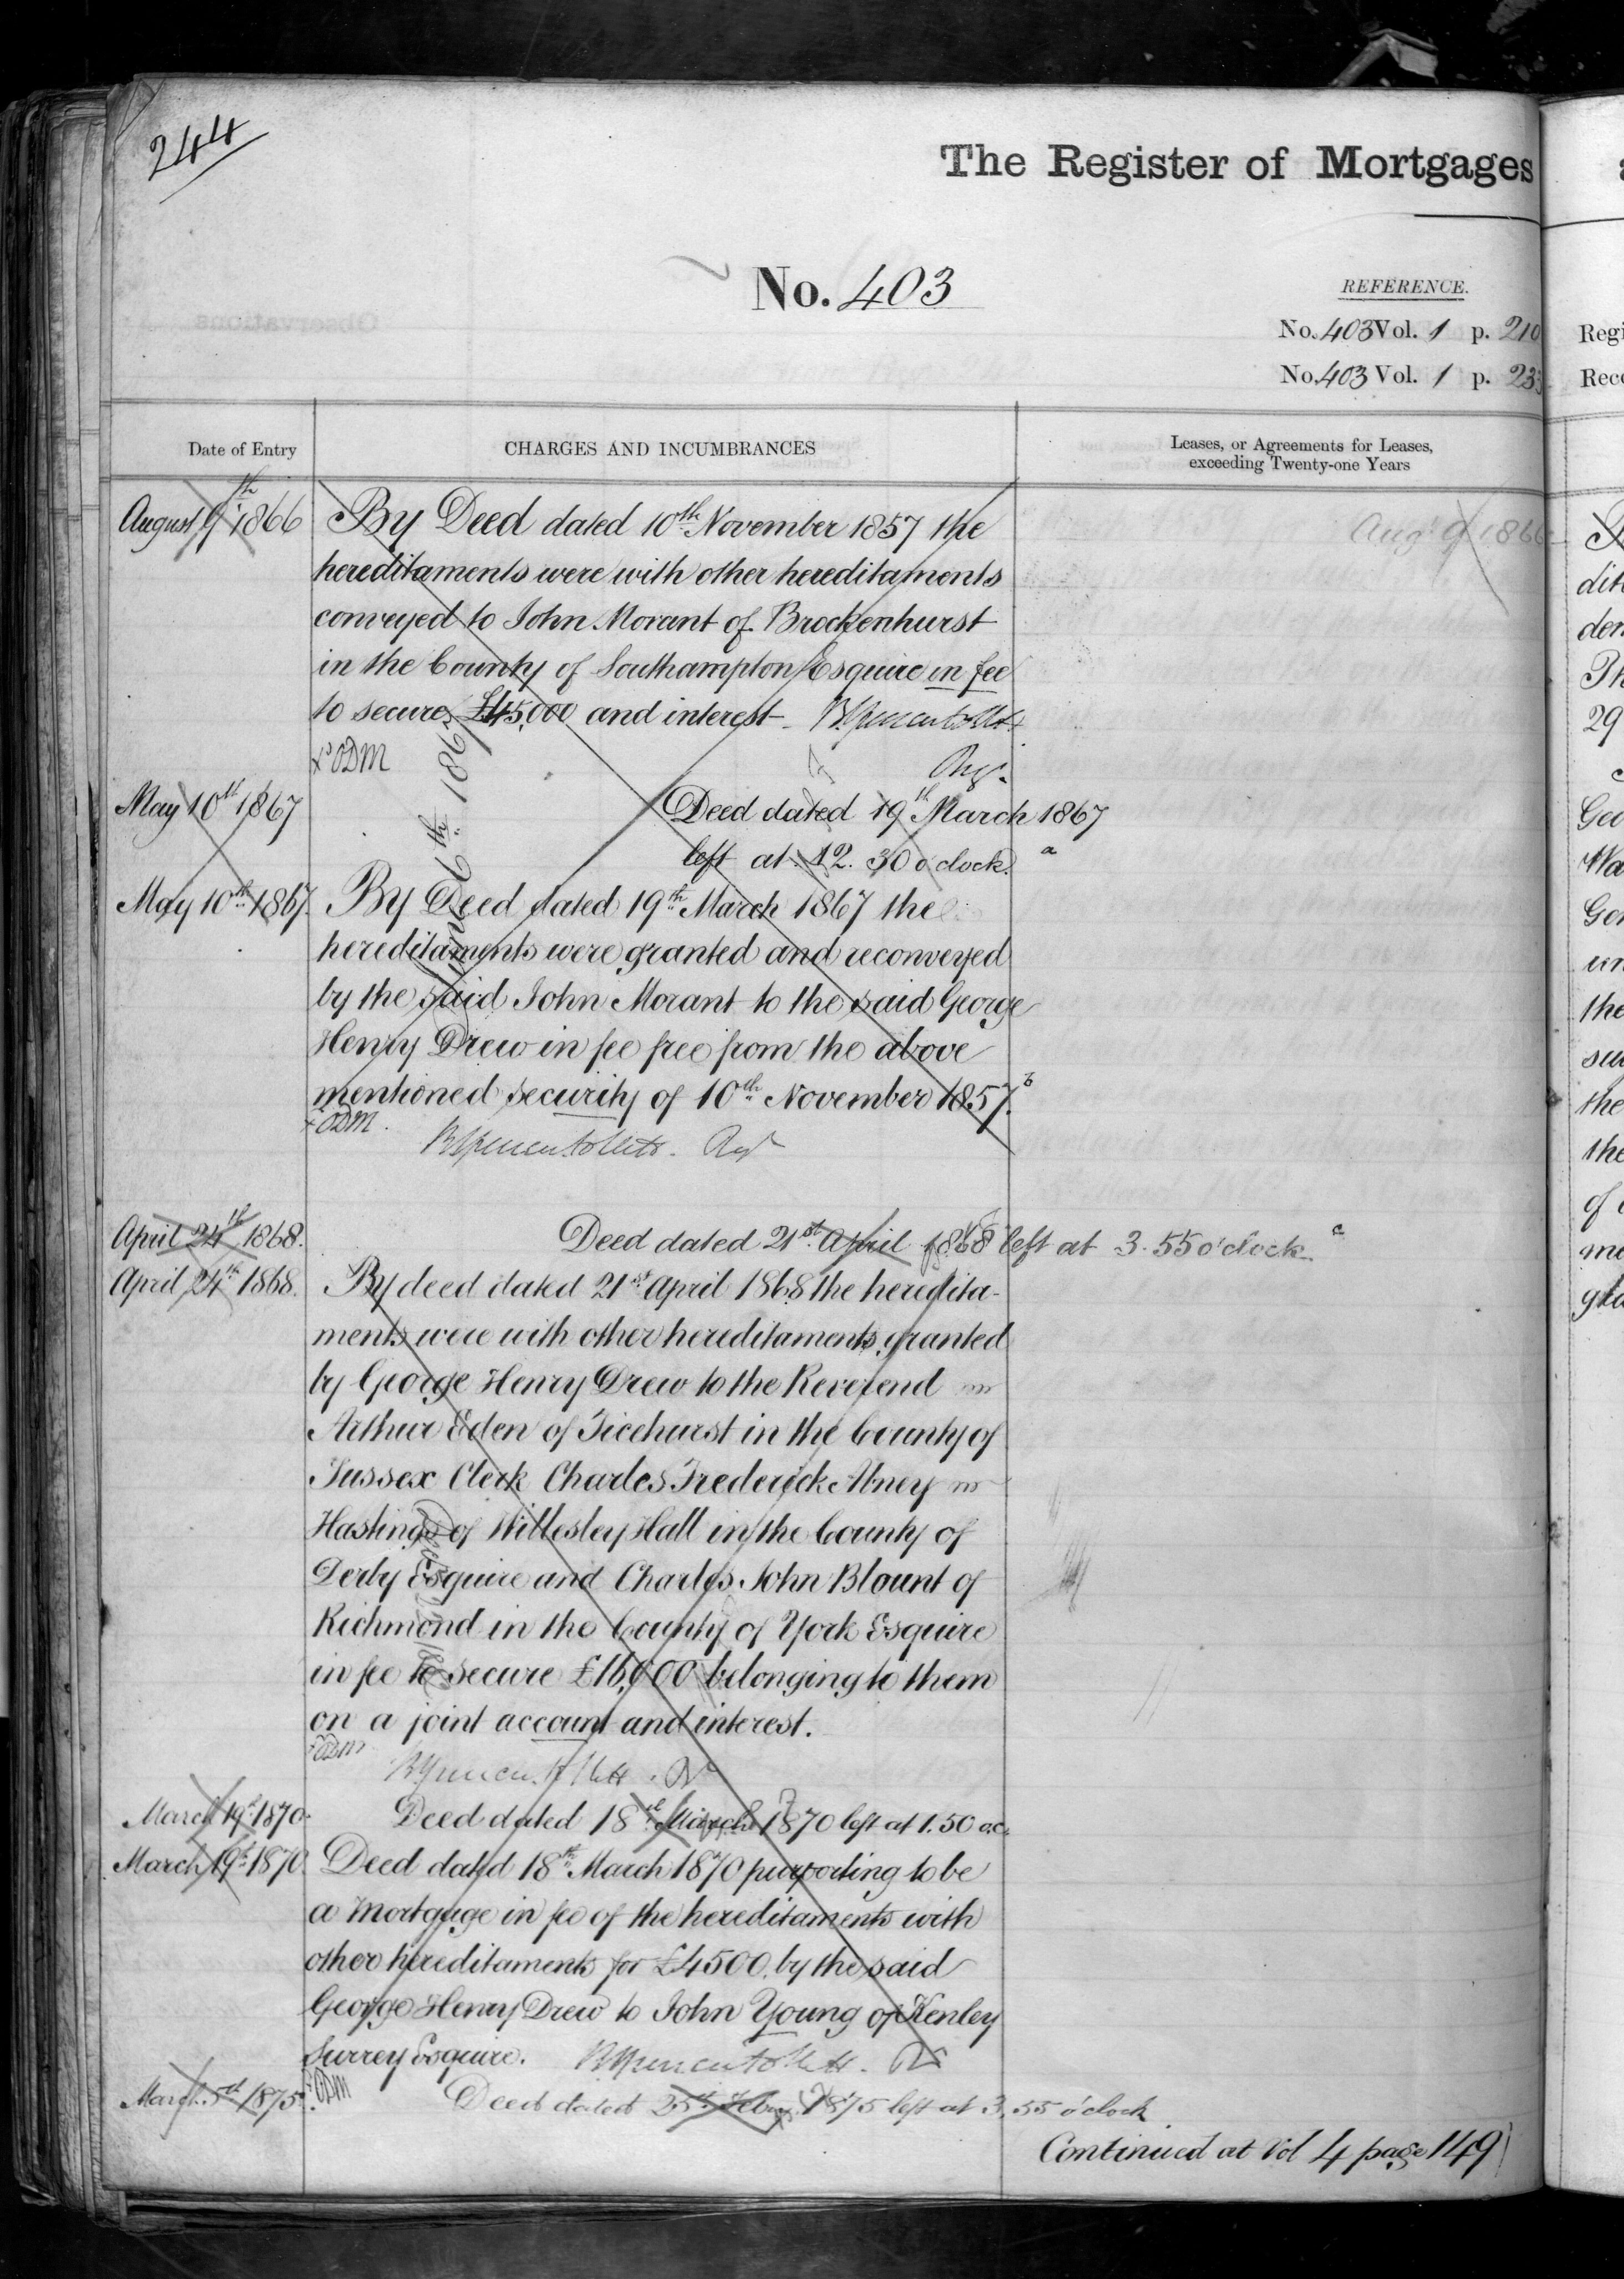 244
The Register of Mortgages
No. 403
REFERENCE.
No. 403 Vol. 1 p. 210
No. 403 Vol. 1 p. 233
Regi
Rec
Date of Entry
CHARGES AND INCUMBRANCES
Leases, or Agreements for Leases,
exceeding Twenty-one Years
August 9th 1866
Aug 9 1866
By Deed dated 10th November 1857 the
hereditaments were with other hereditaments
conveyed to John Morant of Brockenhurst
in the County of Southampton Esquire in fee
to secure £45,000 and interest
ODM
Regr
May 10th 1867
Deed dated 19th March 1867
left at 12.30 o'clock. a
May 10th 1867.
By Deed dated 19th March 1867 the
hereditaments were granted and reconveyed
by the said John Morant to the said George
Henry Drew in fee free from the above
mentioned security of 10th November 1857. b
ODM.
Regr
April 24th 1868.
Deed dated 21st April 1868 left at 3.55 o'clock c
April 24th 1868.
By deed dated 21st April 1868 the heredita-
ments were with other hereditaments granted
by George Henry Drew to the Reverend
Arthur Eden of Ticehurst in the County of
Sussex Clerk Charles Frederick Abney
Hastings of Willesley Hall in the County of
Derby Esquire and Charles John Blount of
Richmond in the County of York Esquire
in fee to secure £16,000 belonging to them
on a joint account and interest.
ODM
March 19th 1870.
Deed dated 18th March 1870 left at 1.50 o.c.
March 19th 1870.
Deed dated 18th March 1870 purporting to be
a Mortgage in fee of the hereditaments with
other hereditaments for £4500 by the said
George Henry Drew to John Young of Kenley
Surrey Esquire.
ODM
March 5th 1875.
Deed dated 25th Feby 1875 left at 3.55 o'clock
Continued at Vol 4 page 149